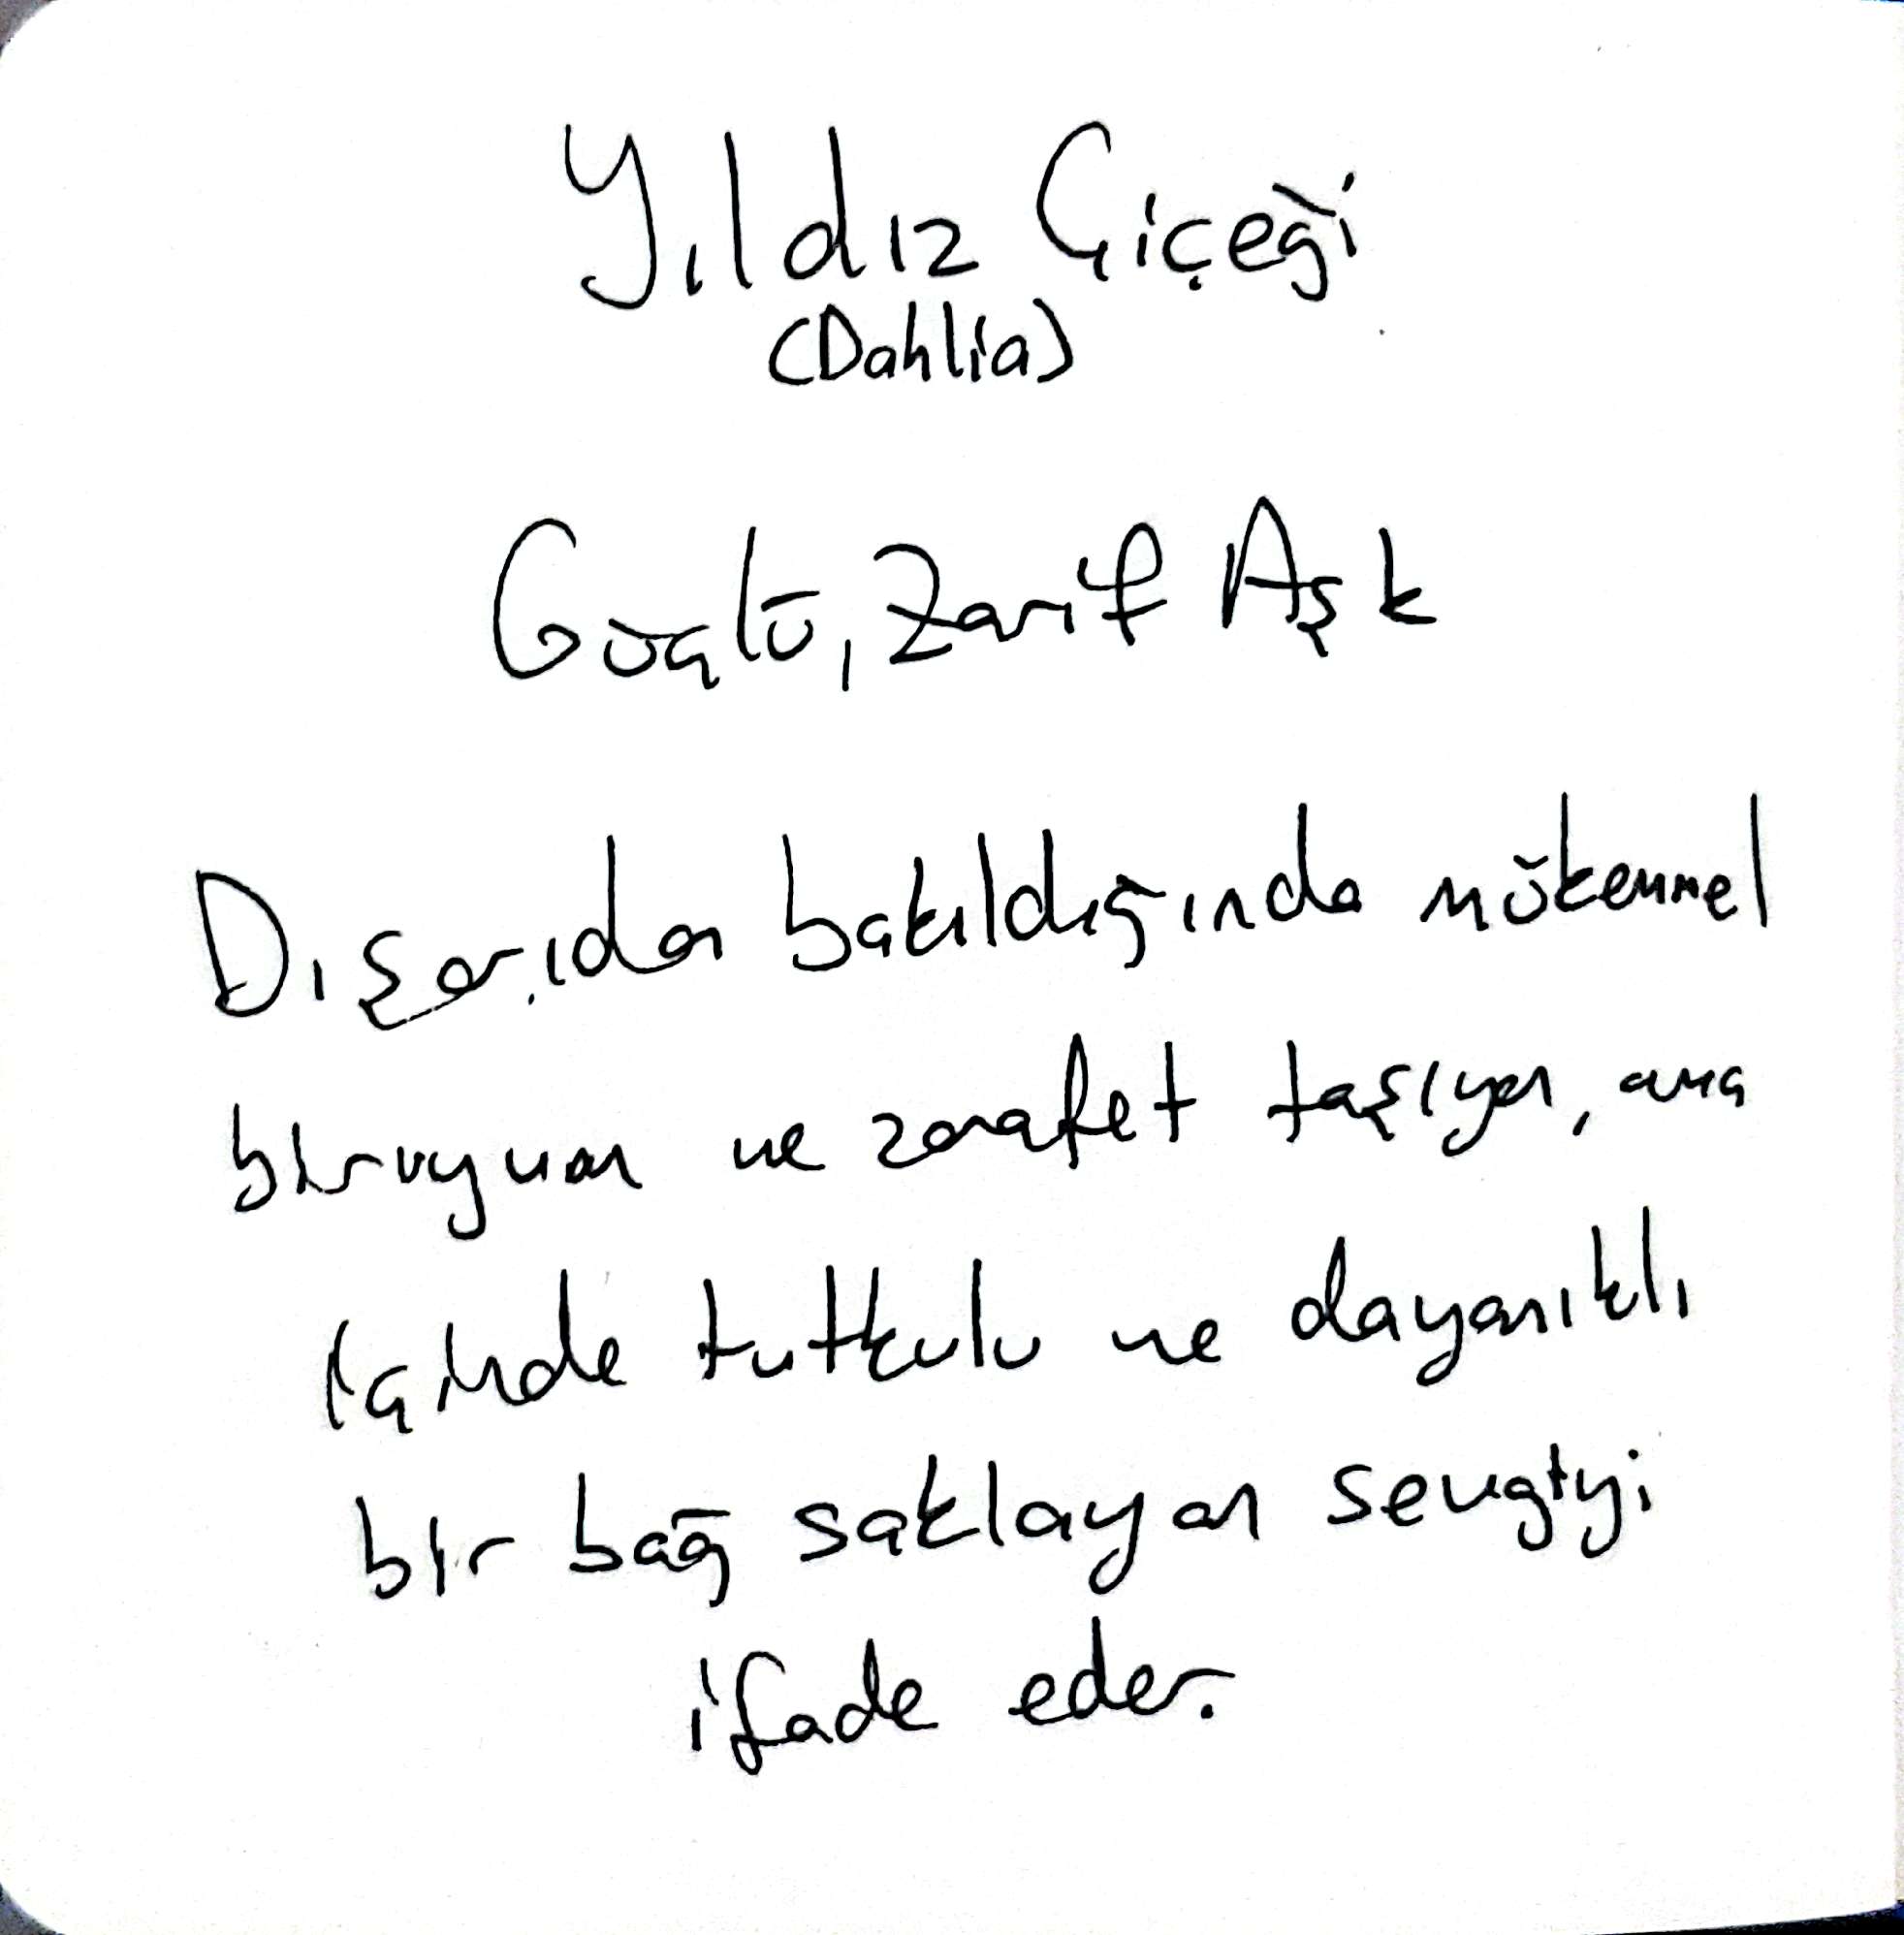 Yıldız Çiçeği
(Dahlia)
Güçlü, Zarif Aşk
Dışarıdan bakıldığında mükemmel
bir uyum ve zarafet taşıyan, ama
içinde tutkulu ve dayanıklı
bir bağ saklayan sevgiyi
ifade eder.